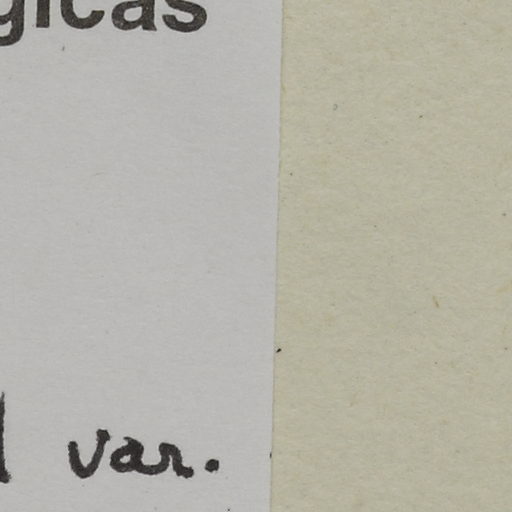 gicas
var.